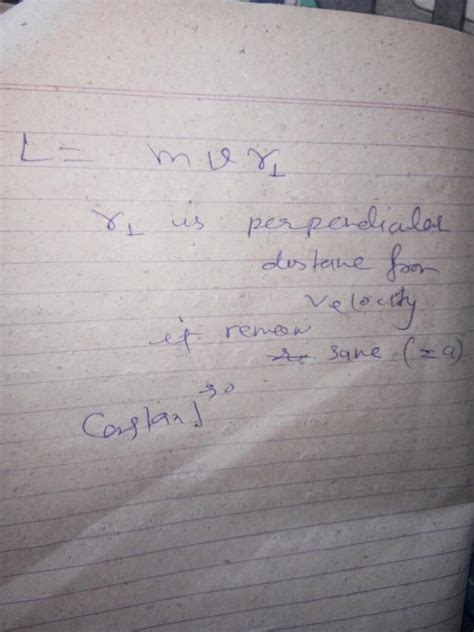 L = m v r⊥
r⊥ is perpendicular
distance from
velocity
it remain
same (= a)
so
Constant